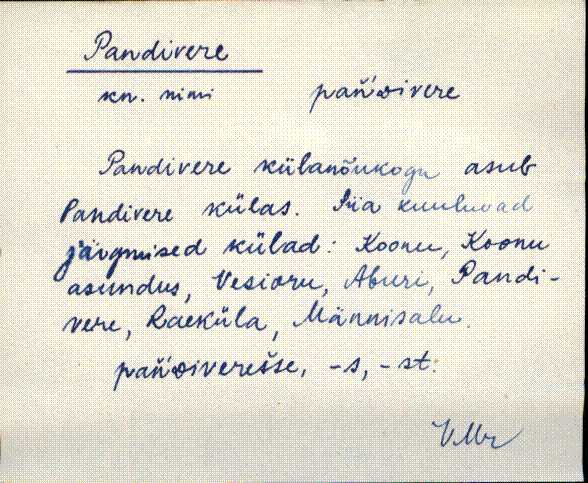 Pandivere
kn. nimi pań'divere
Pandivere külanõukogu asub
Pandivere külas. Siia kuuluvad
järgmised külad: Koonu, Koonu
asundus, Vesioru, Aburi, Pandi-
vere, Raeküla, Männisalu.
pań'diveresse, -s, -st.